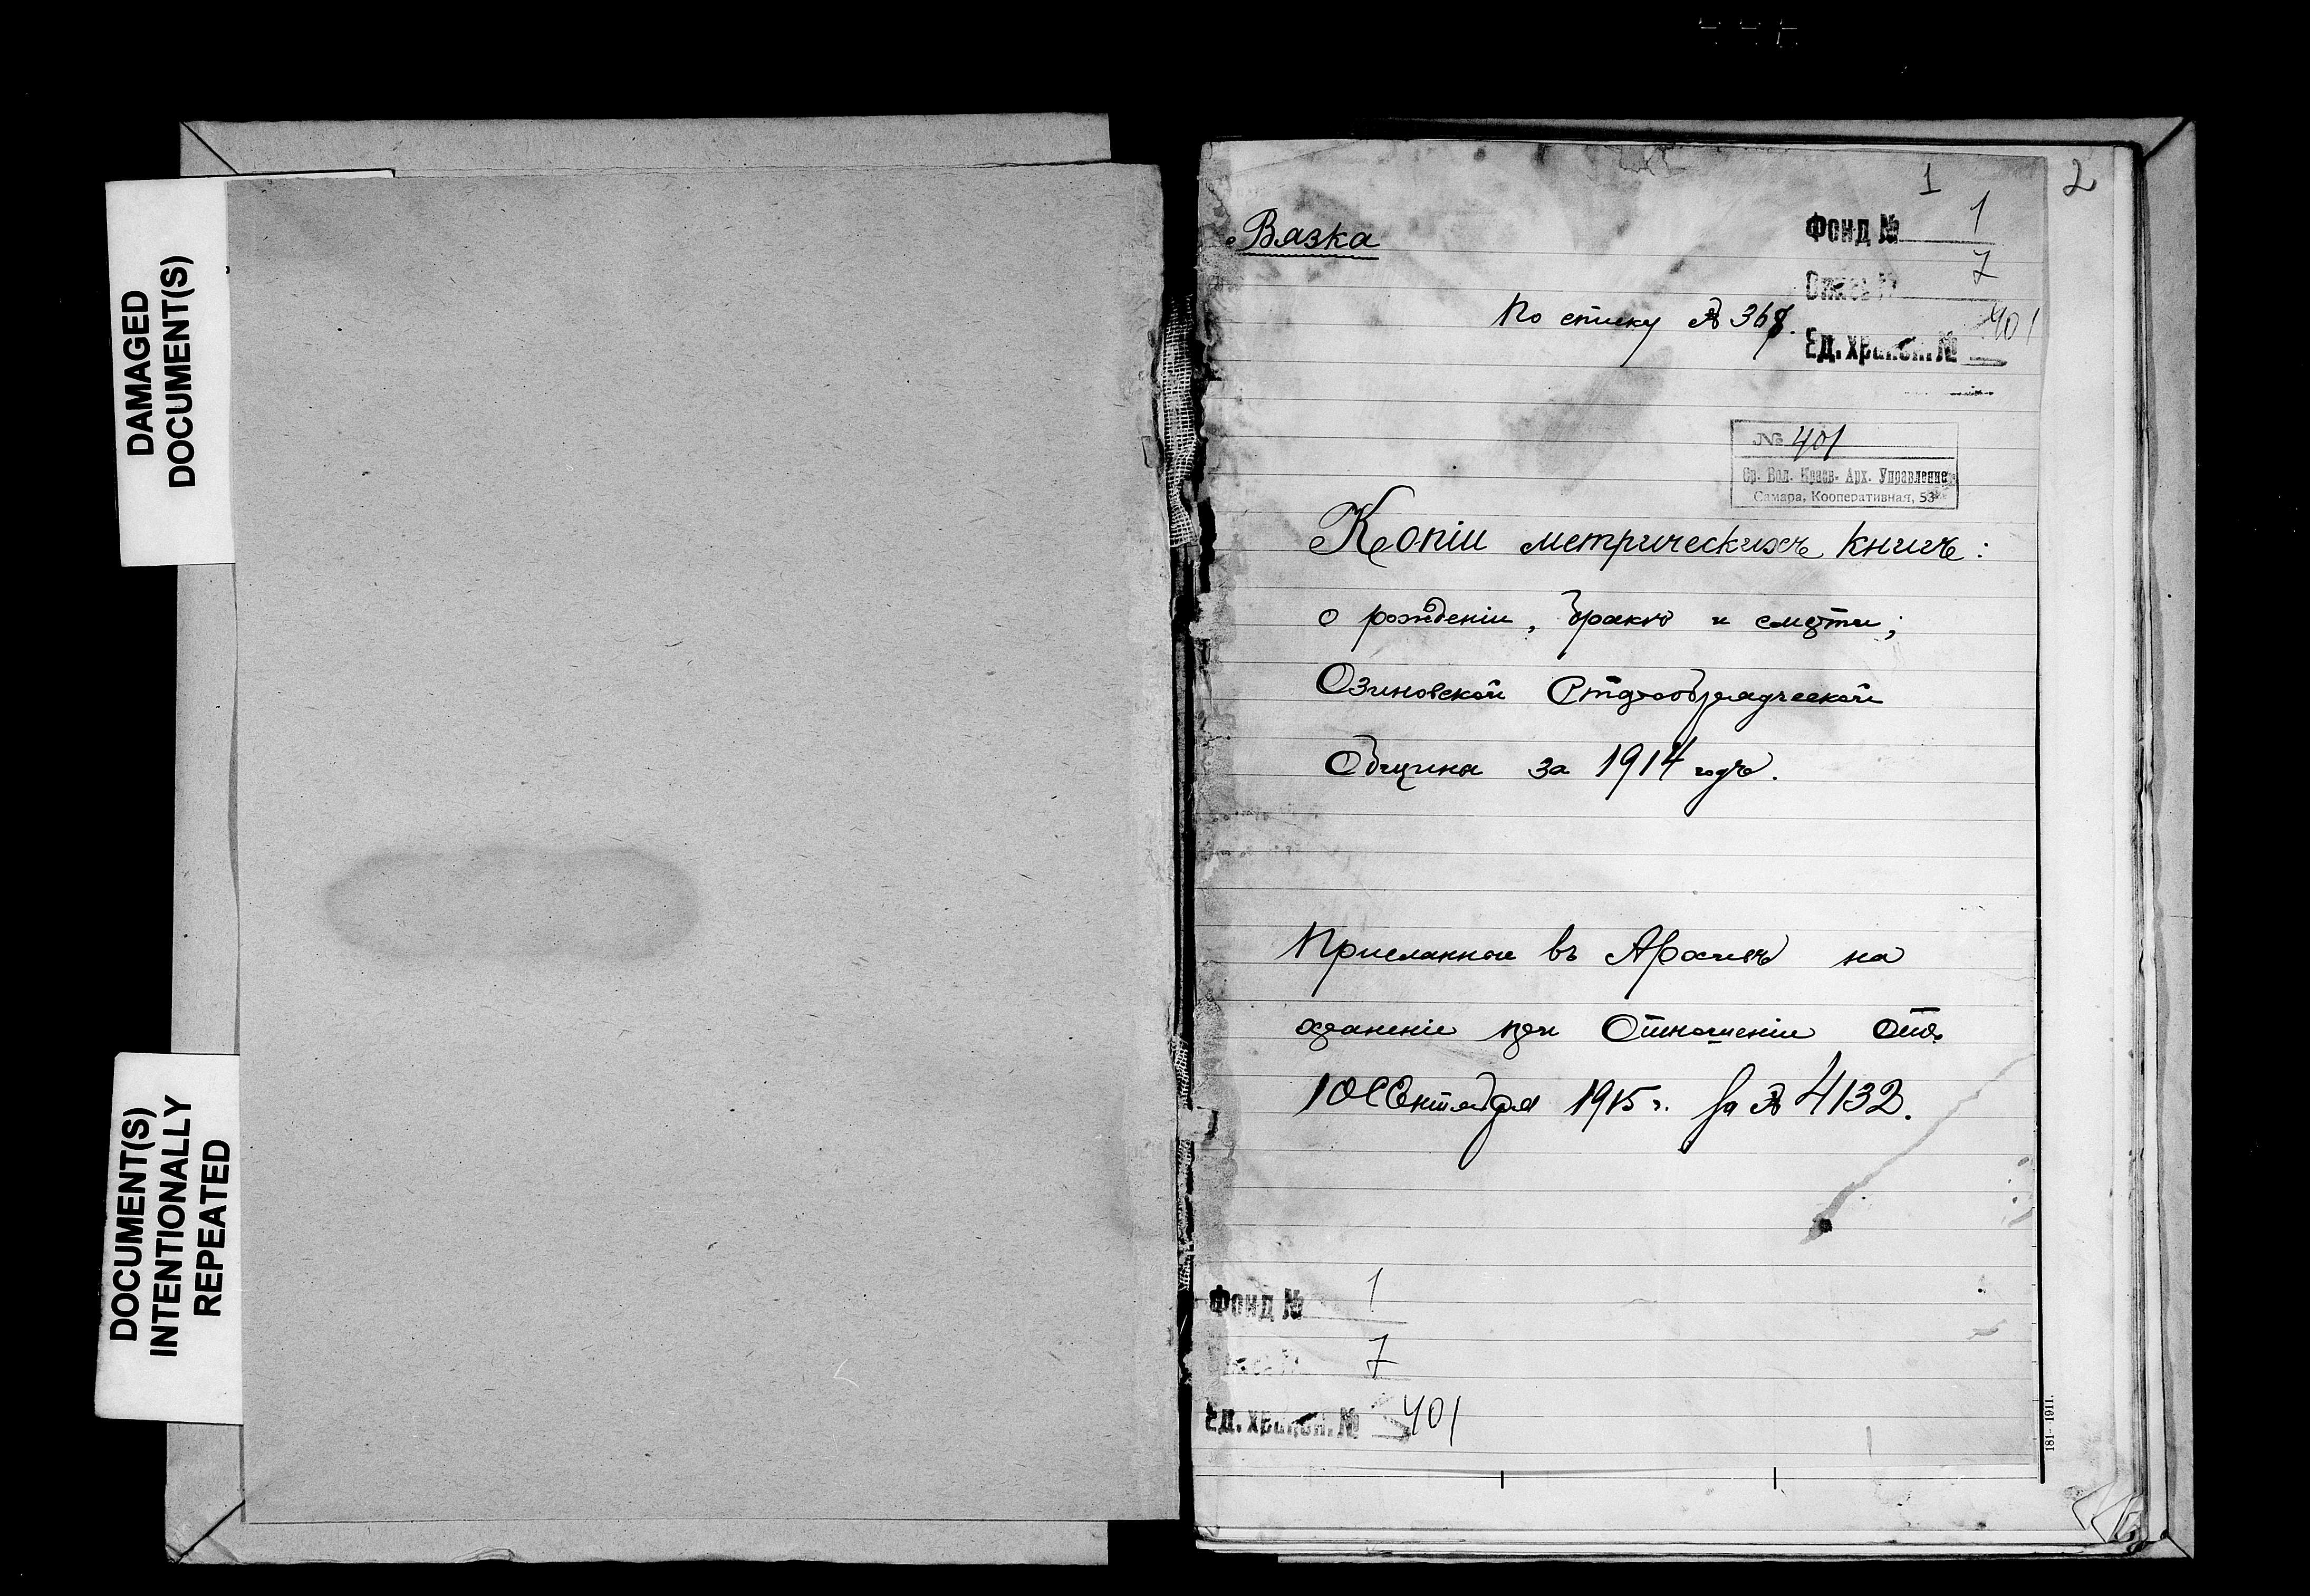 DAMAGED
DOCUMENT(S)
DOCUMENT(S)
INTENTIONALLY
REPEATED
1
2
Вязка
Фонд № 1
Опись № 7
По списку № 368.
Ед. хранен. № 401
№ 401
Ср. Вол. Краев. Арх. Управление
Самара, Кооперативная, 53
Копіи метрическихъ книгъ:
о рожденіи, бракѣ и смерти;
Озиновской Старообрядческой
Община за 1914 годъ.
Присланное въ Архивъ на
храненіе при Отношеніи отъ
10 Сентября 1915 г. за № 4132.
Фонд № 1
Опись № 7
Ед. хранен. № 401
181-1911.